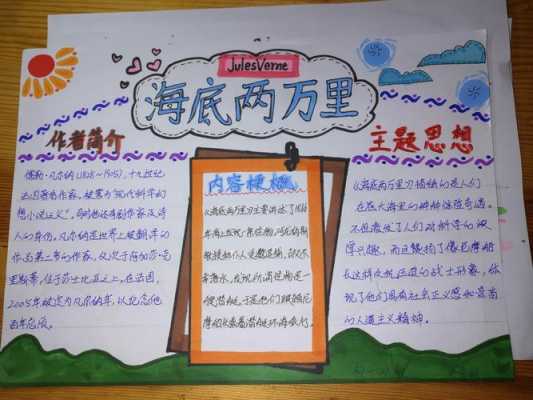 JulesVerne
海底两万里
作者简介
儒勒·凡尔纳(1828~1905),十九世纪
法国著名作家,被誉为"现代科学幻
想小说之父"。同时他还有剧作家及诗
人的身份。凡尔纳是世界上被翻译的
作品第二多的作家,仅次于阿加莎·克
里斯蒂,位于莎士比亚之上。在法国,
2005年被定为凡尔纳年,以纪念他
百年忌辰。
内容梗概
《海底两万里》主要讲述了
海上出现
教授和仆人
潜水
便潜艇,于是他们跟随尼
摩船长乘着潜艇环游旅行。
主题思想
《海底两万里》描绘的是人们
在大海里的种种惊险奇遇。
不但激发了人们对科学的
厚兴趣,而且赞扬了像尼摩船
长这样反抗压迫的战士形象,体
现了他们具有社会正义感和崇高
的人道主义精神。